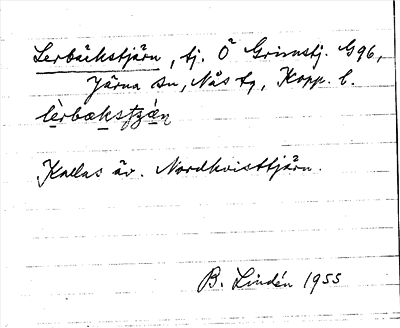 Lerbäckstjärn, tj. Ö Grisnstj. G96,
Järna sn, Nås tg, Kopp. l.
Kallas äv. Nordkvisttjärn.
B. Lindén 1955